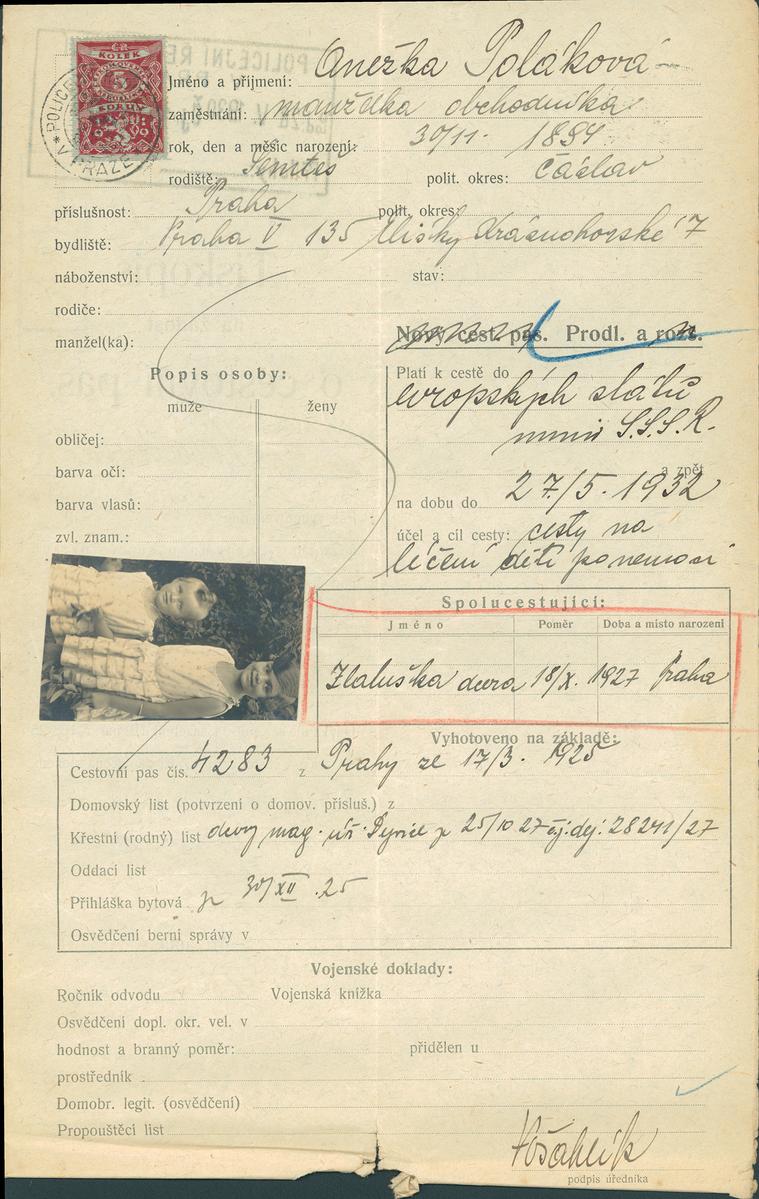 KOLEK
5
KORUN
V PRAZE
Jméno a příjmení: Anežka Poláková
zaměstnání: manželka obchodníka
rok, den a měsíc narození: 30/11. 1894
rodiště: Semteš polit. okres: Čáslav
příslušnost: Praha polit. okres:
bydliště: Praha V 135 Elišky Krásnohorské 7
náboženství: stav:
rodiče:
manžel(ka):
Nový cest. pas. Prodl. a rozš.
Popis osoby:
muže ženy
obličej:
barva očí:
barva vlasů:
zvl. znam.:
Platí k cestě do
evropských států
mimo S.S.S.R.
a zpět
na dobu do 27./5. 1932
účel a cíl cesty: cesty na
léčení dětí po nemoci
Spolucestující:
Jméno Poměr Doba a místo narození
Zlatuška dcera 18/X. 1927 Praha
Vyhotoveno na základě:
Cestovní pas čís. 4283 z Prahy ze 17/3. 1925
Domovský list (potvrzení o domov. přísluš.) z
Křestní (rodný) list dcery mag. 25/10 27 28241/27
Oddací list
Přihláška bytová 30/XII .25
Osvědčení berní správy v
Vojenské doklady:
Ročník odvodu Vojenská knížka
Osvědčení dopl. okr. vel. v
hodnost a branný poměr: přidělen u
prostředník
Domobr. legit. (osvědčení)
Propouštěcí list
podpis úředníka